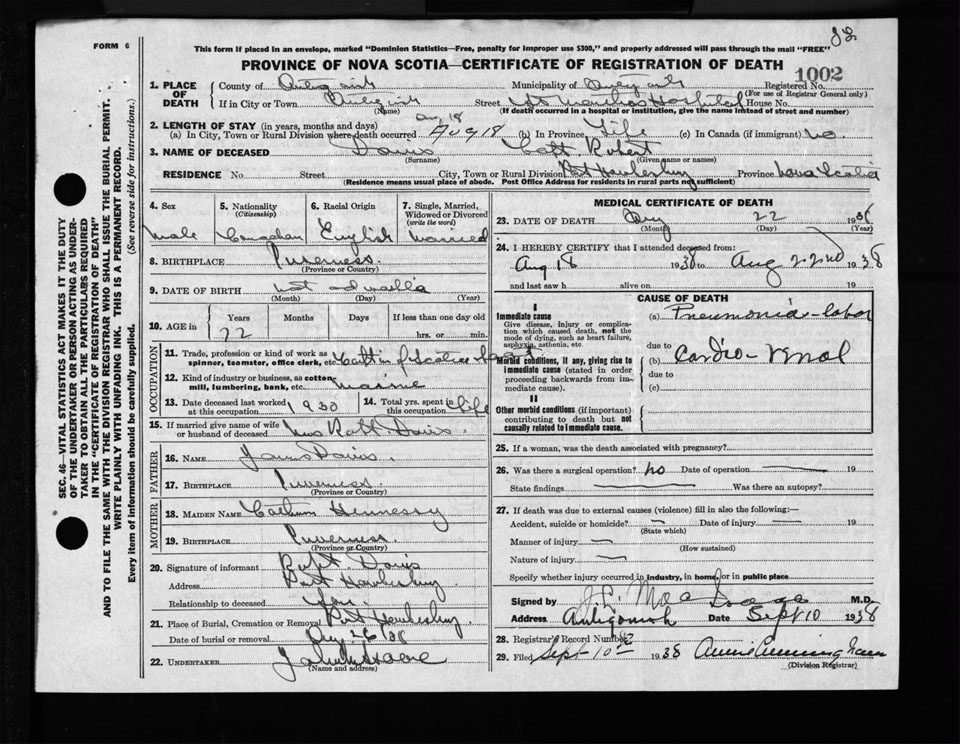 FORM 6
This form if placed in an envelope, marked "Dominion Statistics—Free, penalty for improper use $300," and properly addressed will pass through the mail "FREE"
PROVINCE OF NOVA SCOTIA—CERTIFICATE OF REGISTRATION OF DEATH
1002
1. PLACE OF DEATH
County of Antigonish Municipality of Antigonish Registered No.
(For use of Registrar General only)
If in City or Town Antigonish Street St Marthas Hospital House No.
(Name) (If death occurred in a hospital or institution, give the name instead of street and number)
2. LENGTH OF STAY (in years, months and days)
Aug 18
(a) In City, Town or Rural Division where death occurred Aug 18 (b) In Province Life (c) In Canada (if immigrant) no
3. NAME OF DECEASED Davis Capt. Robert
(Surname) (Given name or names)
RESIDENCE No. Street City, Town or Rural Division Port Hawkesbury Province Nova Scotia
(Residence means usual place of abode. Post Office Address for residents in rural parts not sufficient)
4. Sex
Male
5. Nationality
(Citizenship)
Canadian
6. Racial Origin
English
7. Single, Married, Widowed or Divorced
(write the word)
Married
8. BIRTHPLACE Inverness.
(Province or Country)
9. DATE OF BIRTH not
(Month) (Day) (Year)
10. AGE in
Years Months Days If less than one day old
72 hrs. or min.
OCCUPATION
11. Trade, profession or kind of work as spinner, teamster, office clerk, etc.
12. Kind of industry or business, as cotton-mill, lumbering, bank, etc. marine
13. Date deceased last worked at this occupation 1930
14. Total yrs. spent in this occupation life
15. If married give name of wife or husband of deceased Mrs Robt. Davis.
FATHER
16. NAME Davis.
17. BIRTHPLACE Inverness.
(Province or Country)
MOTHER
18. MAIDEN NAME Hennessy
19. BIRTHPLACE Inverness.
(Province or Country)
20. Signature of informant Davis
Address Port Hawkesbury
Relationship to deceased Son.
21. Place of Burial, Cremation or Removal Port Hawkesbury
Date of burial or removal Aug 26/38
22. UNDERTAKER
(Name and address)
MEDICAL CERTIFICATE OF DEATH
23. DATE OF DEATH Aug 22 1938
(Month) (Day) (Year)
24. I HEREBY CERTIFY that I attended deceased from:
Aug 18 1938 to Aug 22nd 1938
and last saw h alive on 19
CAUSE OF DEATH
I
Immediate cause
Give disease, injury or complication which caused death, not the mode of dying, such as heart failure, asphyxia, asthenia, etc.
(a) Pneumonia - lobar
due to
Morbid conditions, if any, giving rise to immediate cause (stated in order proceeding backwards from immediate cause).
(b) Cardio-renal
due to
(c)
II
Other morbid conditions (if important) contributing to death but not causally related to immediate cause.
25. If a woman, was the death associated with pregnancy?
26. Was there a surgical operation? no Date of operation 19
State findings Was there an autopsy?
27. If death was due to external causes (violence) fill in also the following:—
Accident, suicide or homicide? Date of injury 19
(State which)
Manner of injury
(How sustained)
Nature of injury
Specify whether injury occurred in industry, in home, or in public place
Signed by M.D.
Address Antigonish Date Sept 10 1938
28. Registrar's Record Number
29. Filed Sept 10th 1938 Annie Cunningham
(Division Registrar)
SEC. 46—VITAL STATISTICS ACT MAKES IT THE DUTY
OF THE UNDERTAKER OR PERSON ACTING AS UNDER-
TAKER TO OBTAIN ALL THE PARTICULARS REQUIRED
IN THE "CERTIFICATE OF REGISTRATION OF DEATH"
AND TO FILE THE SAME WITH THE DIVISION REGISTRAR WHO SHALL ISSUE THE BURIAL PERMIT.
WRITE PLAINLY WITH UNFADING INK. THIS IS A PERMANENT RECORD.
Every item of information should be carefully supplied. (See reverse side for instructions.)